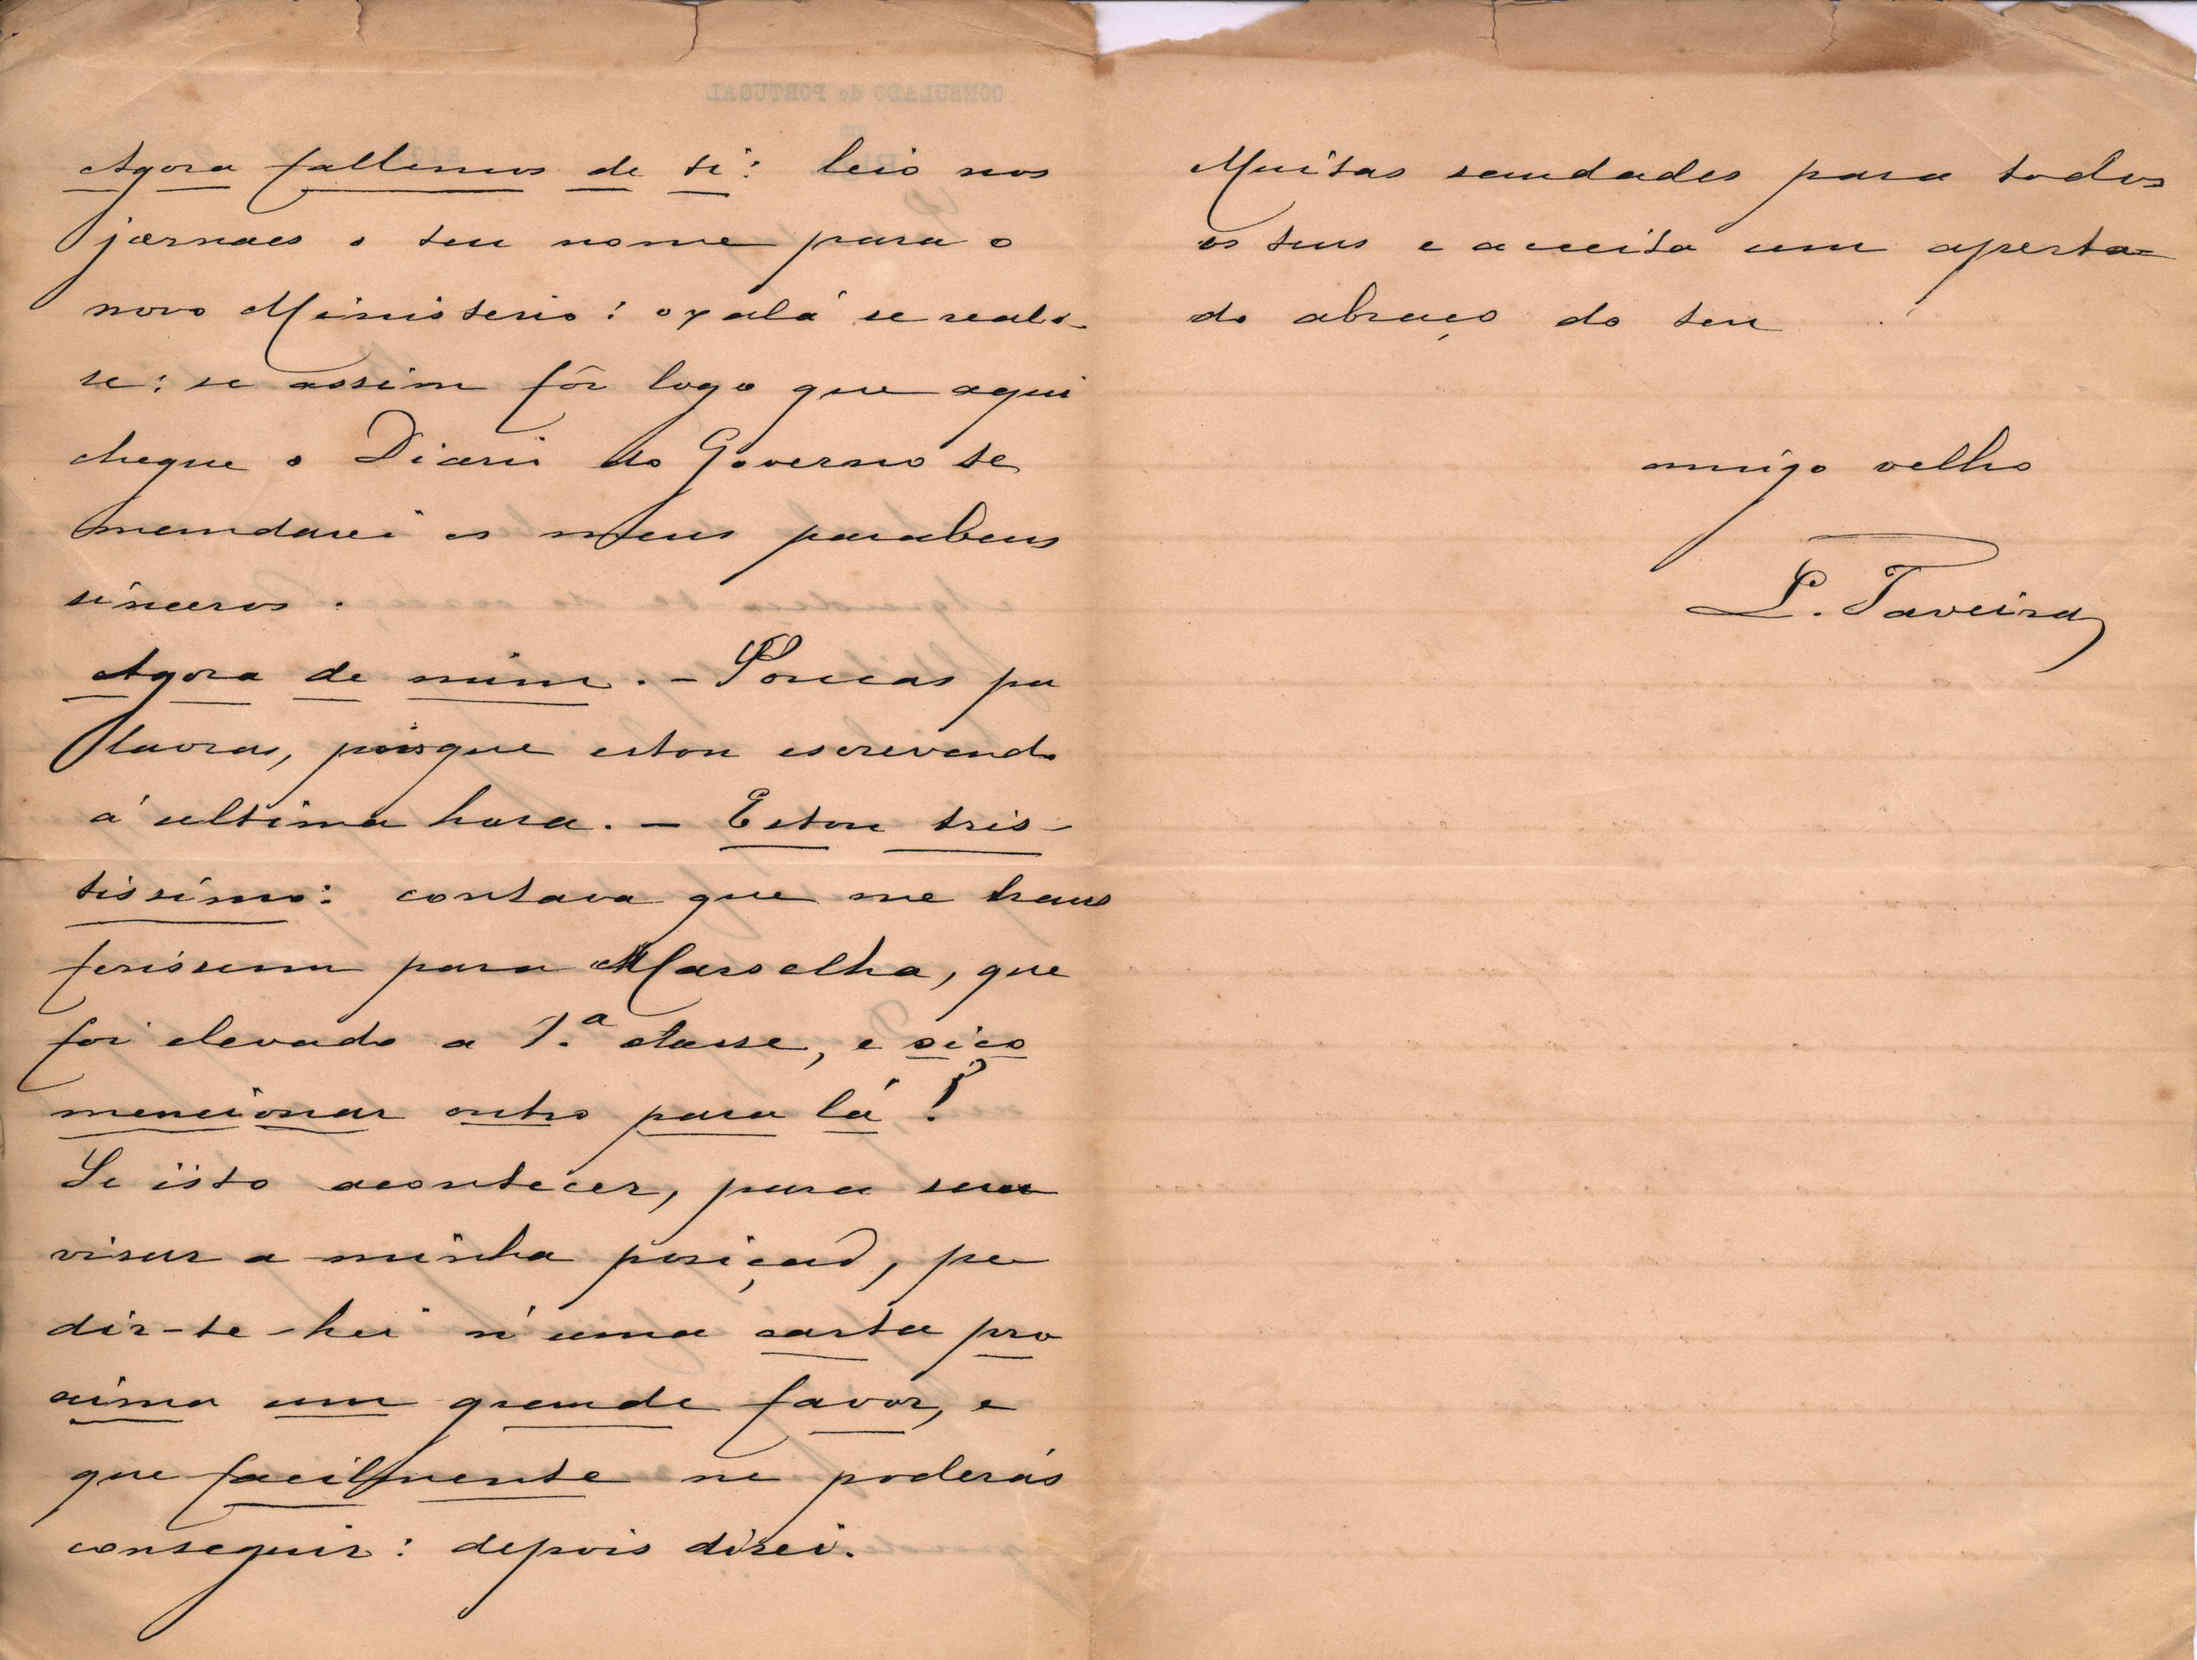 Agora fallemos de ti: leio nos
jornaes o teu nome para o
novo Ministerio: oxalá se reali-
se: se assim fôr logo que aqui
chegue o Diario do Governo te
mandarei os meus parabens
sinceros.
Agora de mim. – Poucas pa
lavras, porque estou escrevendo
á ultima hora. – Estou tris-
tissimo: contava que me trans
ferissem para Marselha, que
foi elevado a 1.ª classe, e oiço
mencionar outro para lá!
Se isto acontecer, para sua
visar a minha posição, pe
dir-te-hei n'uma carta pro
xima um grande favor, e
que facilmente me poderás
conseguir: depois direi.
Muitas saudades para todos
os teus e acceita um aperta-
do abraço do teu
amigo velho
L. Taveira
CONSULADO de PORTUGAL